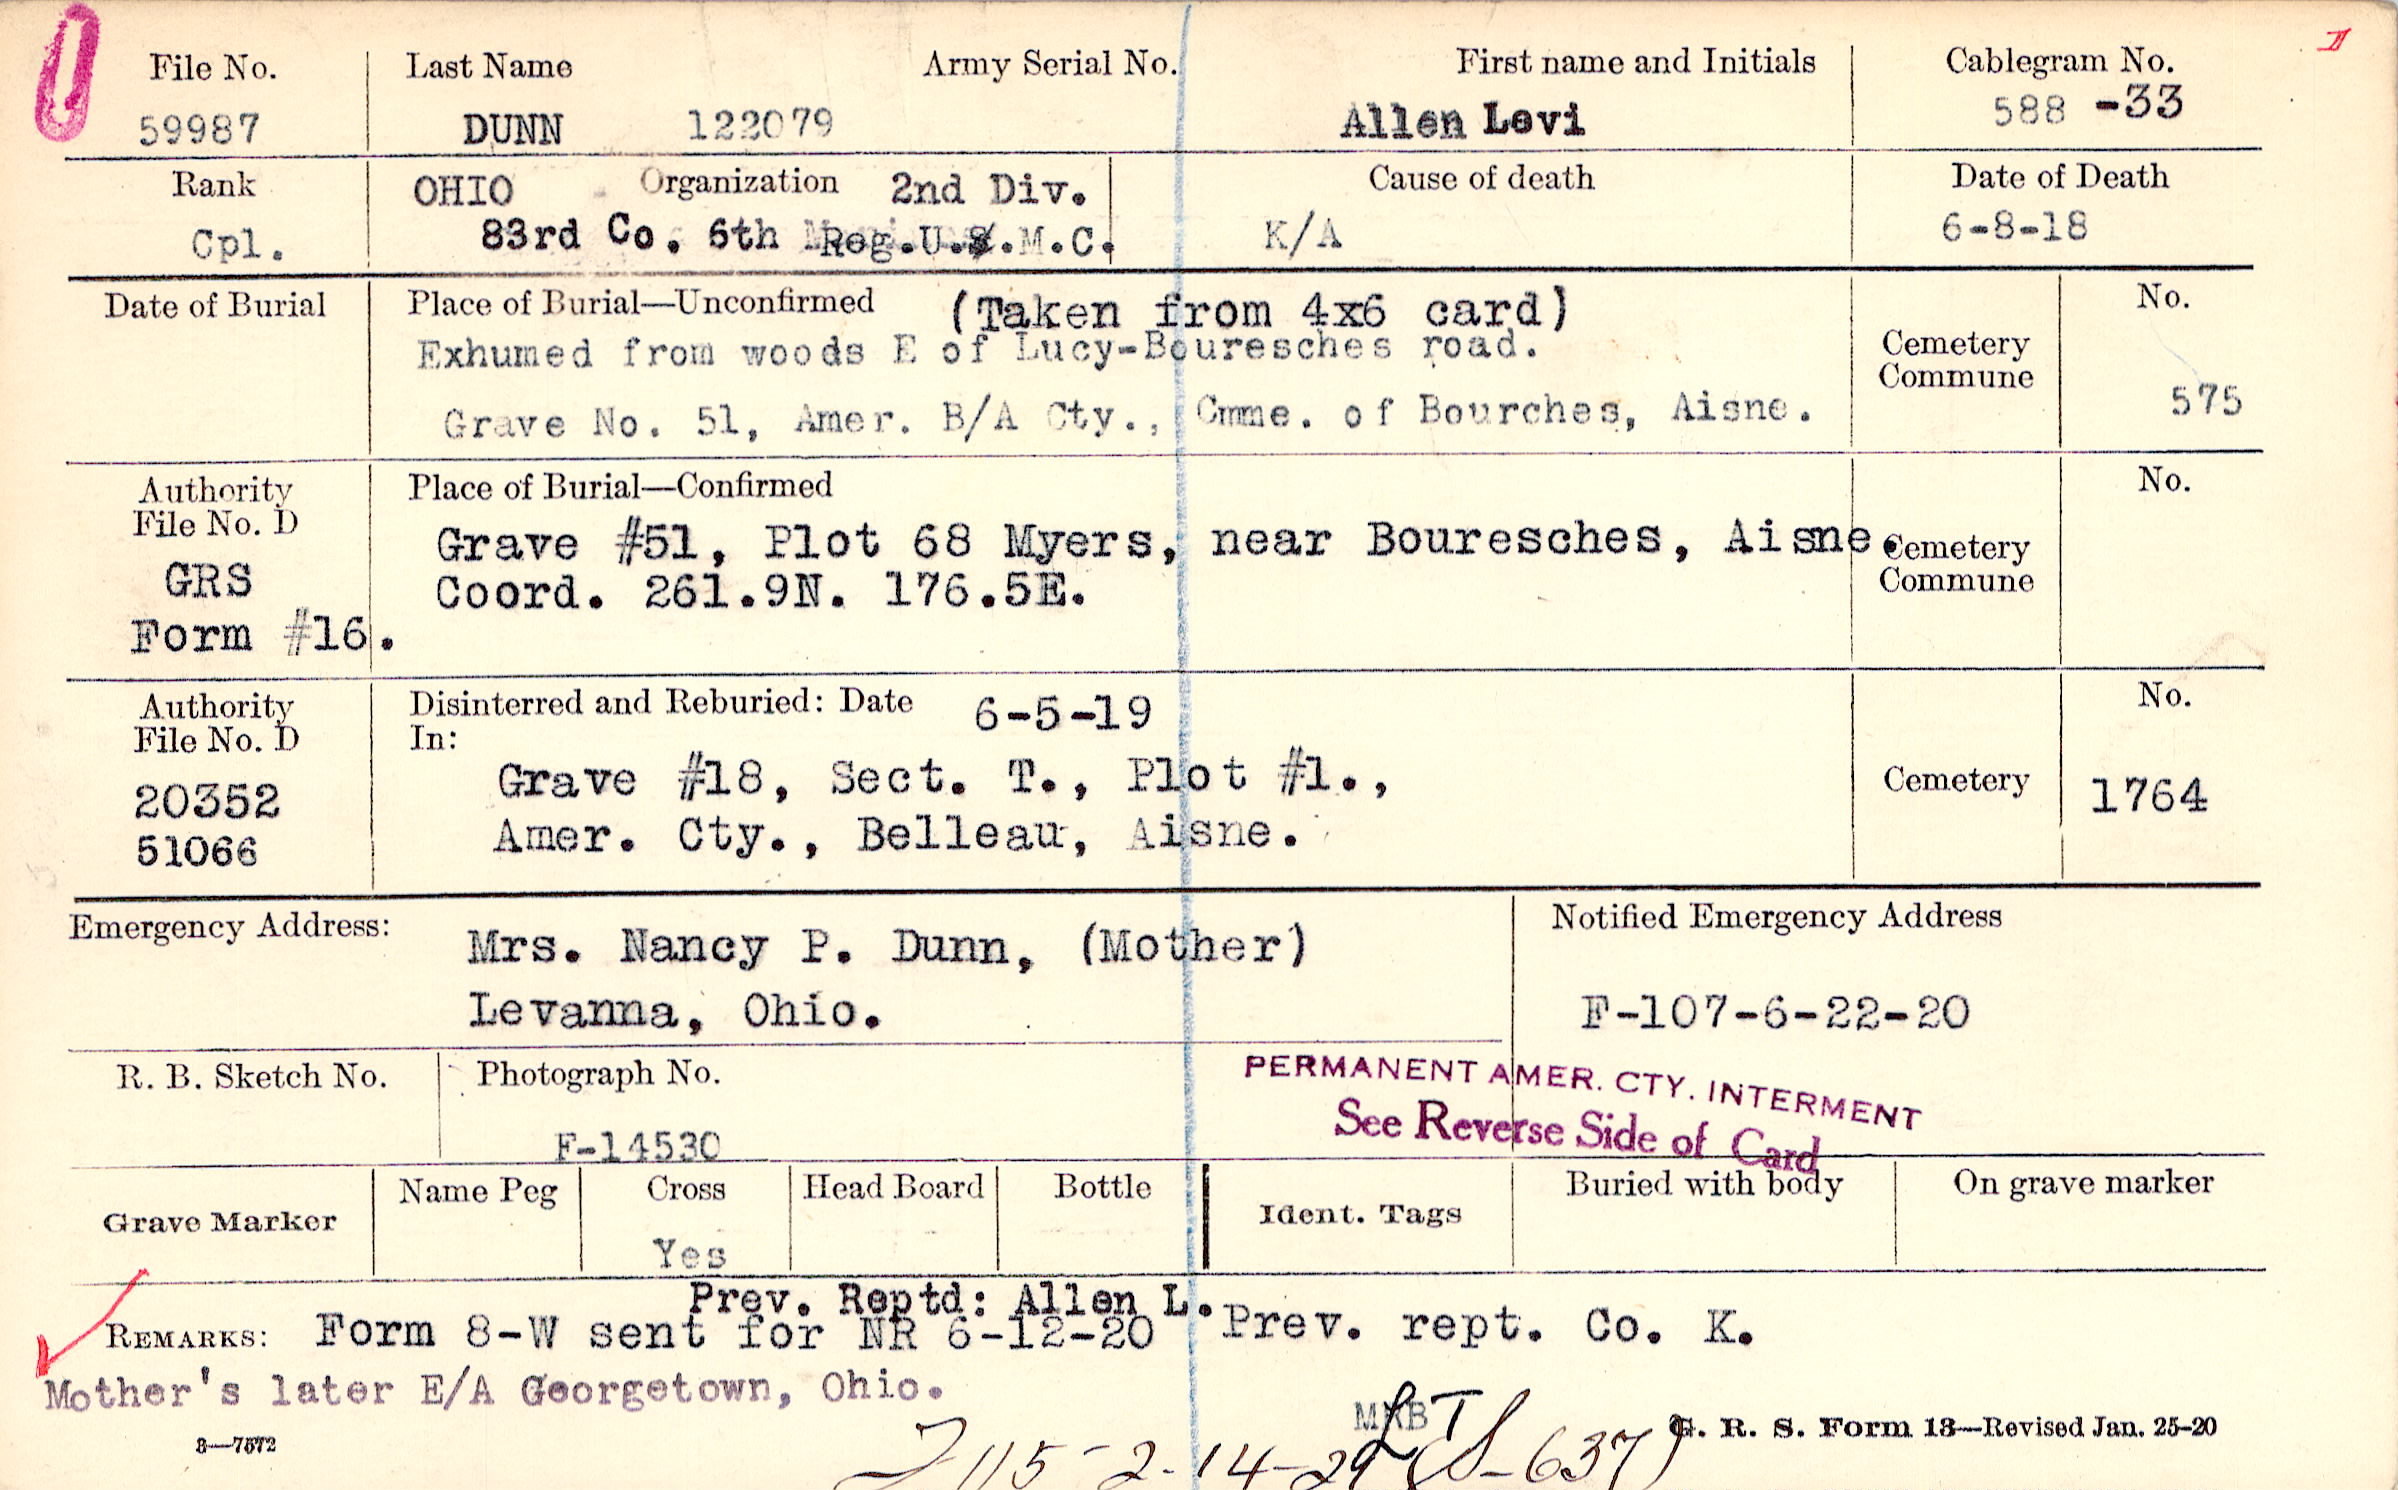 File No. Last Name Army Serial No. First name and Initials Cablegram No.
59987 DUNN 122079 Allen Levi 588 -33
Rank OHIO Organization 2nd Div. Cause of death Date of Death
Cpl. 83rd Co. 6th Reg.U.S.M.C. K/A 6-8-18
Date of Burial Place of Burial—Unconfirmed (Taken from 4x6 card) No.
Exhumed from woods E of Lucy-Bouresches road. Cemetery
Commune
Grave No. 51, Amer. B/A Cty., Cmme. of Bourches, Aisne. 575
Authority Place of Burial—Confirmed No.
File No. D
Grave #51, Plot 68 Myers, near Bouresches, Aisne. Cemetery
GRS Coord. 261.9N. 176.5E. Commune
Form #16.
Authority Disinterred and Reburied: Date 6-5-19 No.
File No. D In:
20352 Grave #18, Sect. T., Plot #1., Cemetery 1764
51066 Amer. Cty., Belleau, Aisne.
Emergency Address: Mrs. Nancy P. Dunn, (Mother) Notified Emergency Address
Levanna, Ohio. F-107-6-22-20
R. B. Sketch No. Photograph No. PERMANENT AMER. CTY. INTERMENT
F-14530 See Reverse Side of Card
Grave Marker Name Peg Cross Head Board Bottle Ident. Tags Buried with body On grave marker
Yes
Prev. Reptd: Allen L.
REMARKS: Form 8-W sent for NR 6-12-20 Prev. rept. Co. K.
Mother's later E/A Georgetown, Ohio.
3—7572 G. R. S. Form 13—Revised Jan. 25-20
115-2-14-29 (S-637)